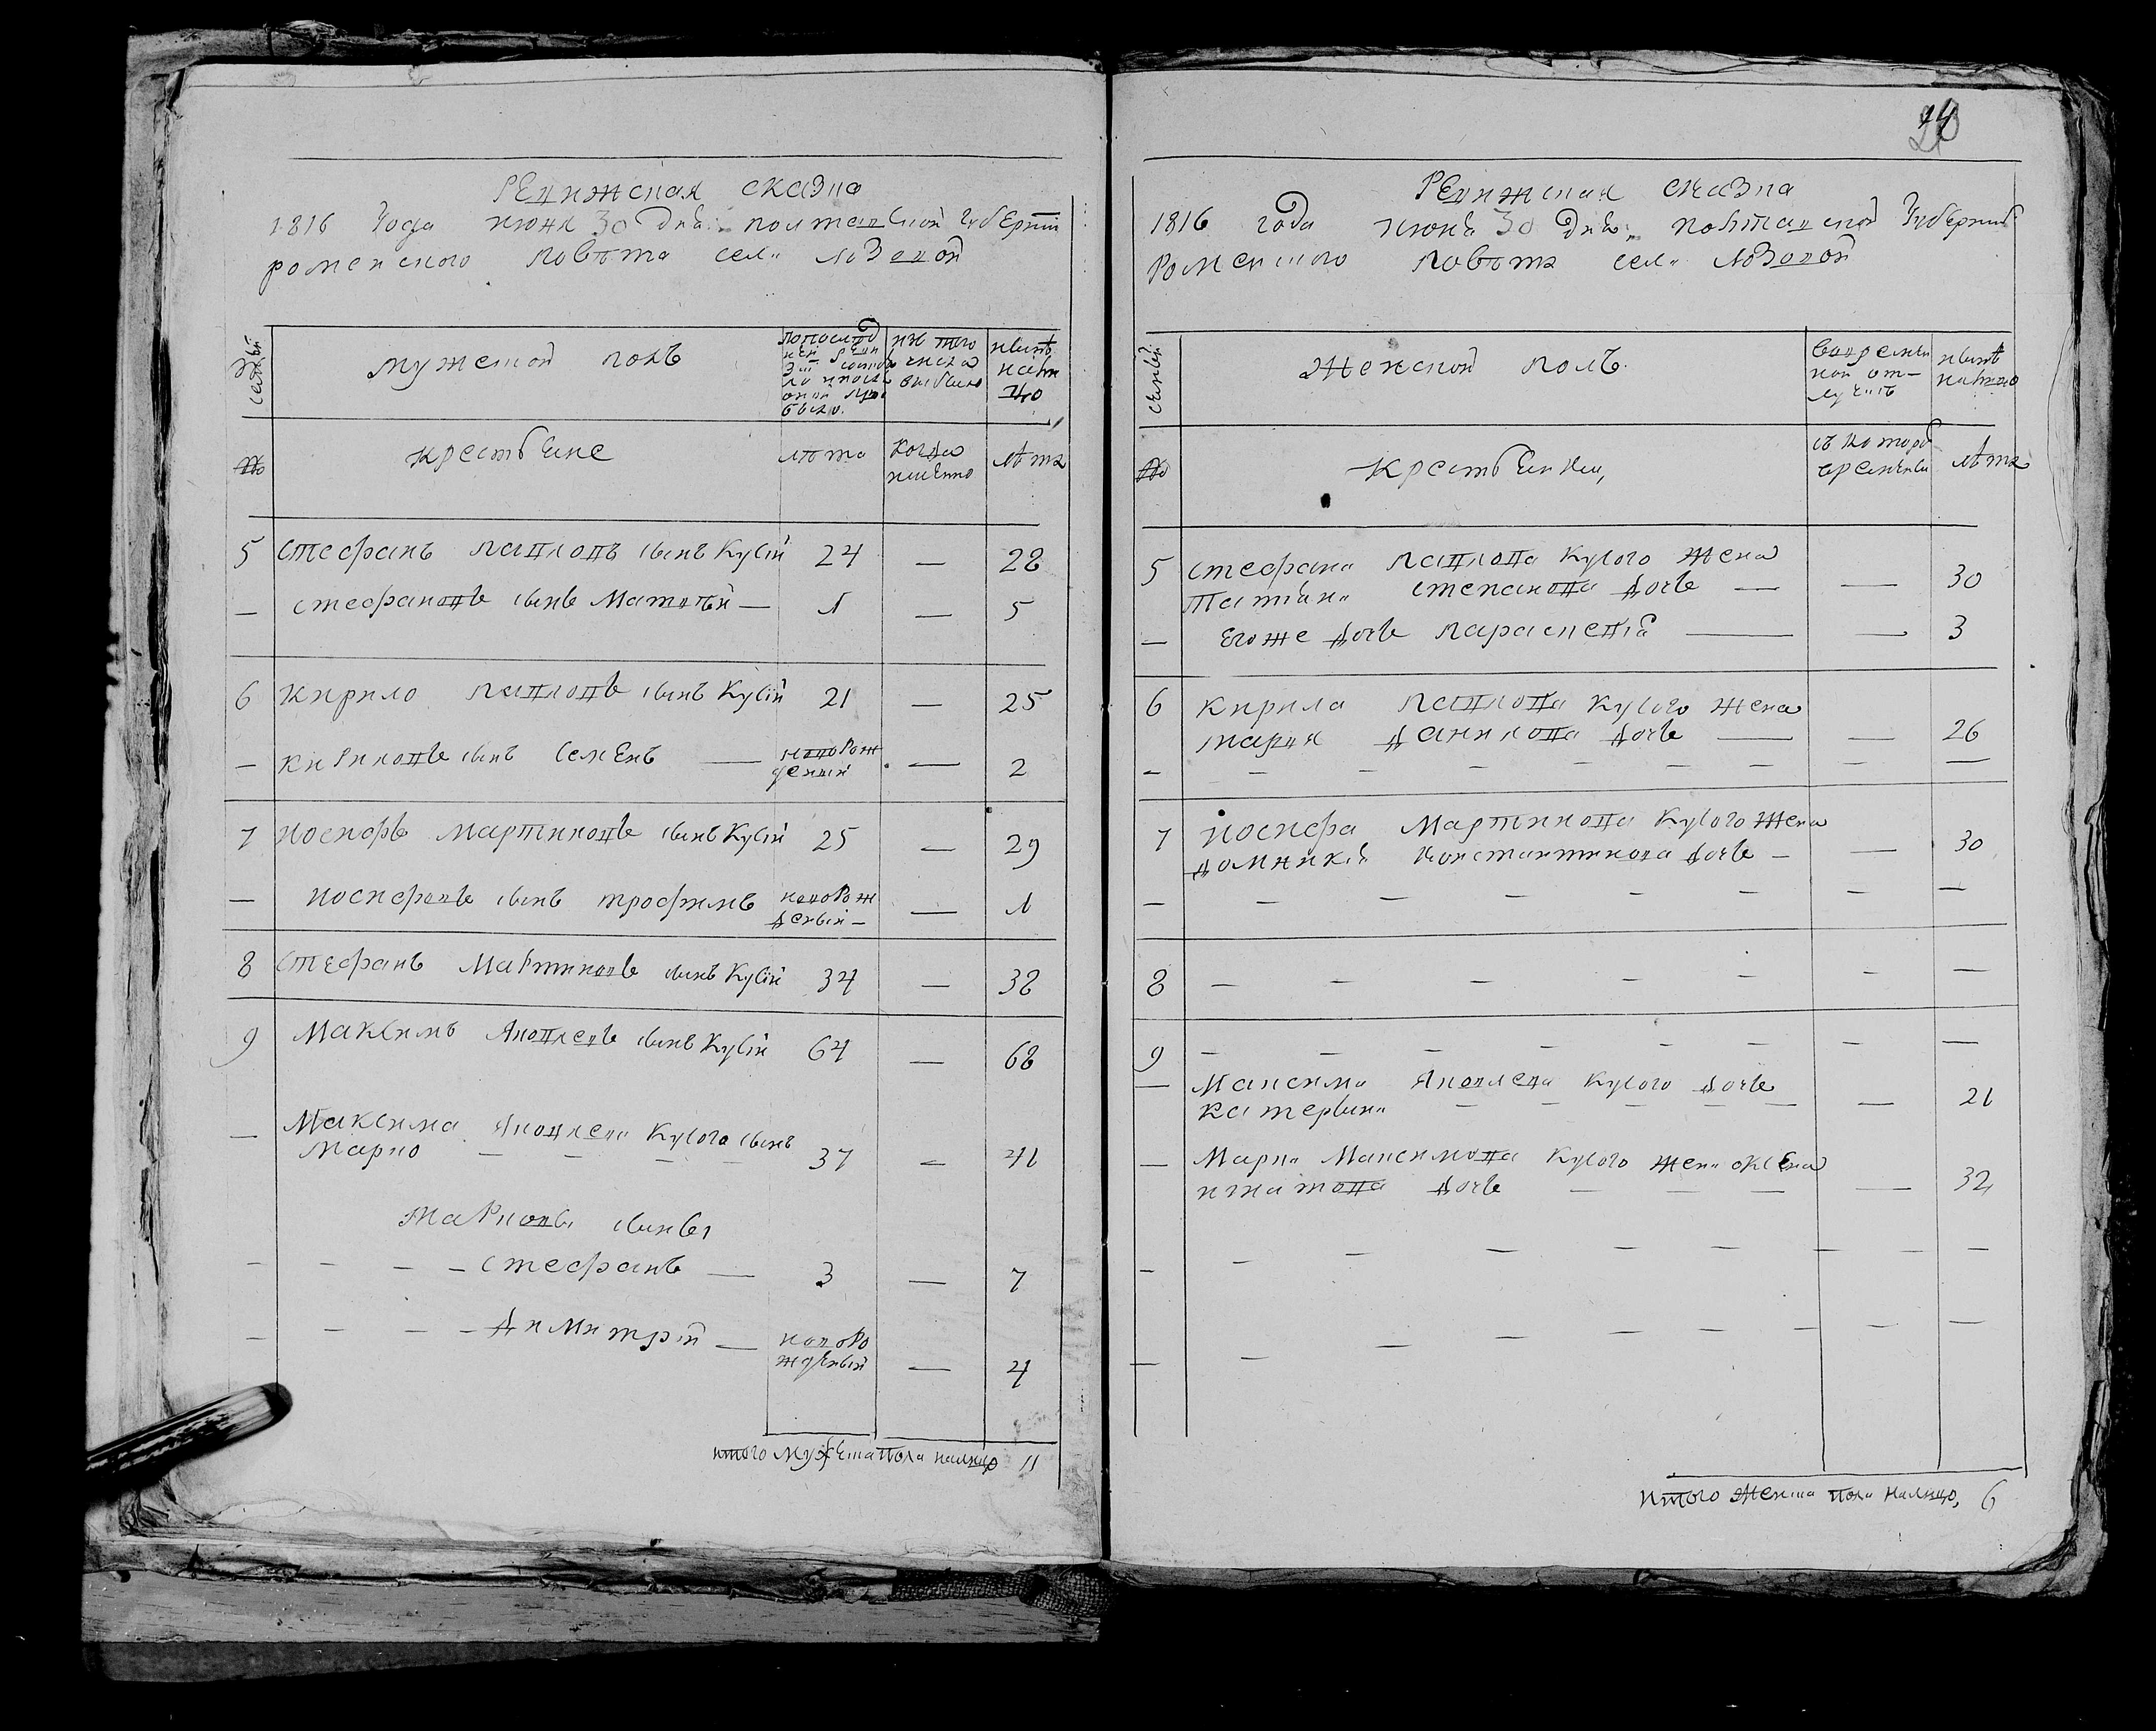 Ревижская сказка
1816 Года июня 30 дня: полтавской губерніи
роменского повѣта сел: лозовой
№ семьи
мужеской полъ
по последней ревизіи состояло и после оной прибыло
изъ того числа выбыло
ныне на лицо
№
крестьяне
лѣта
когда именно
лѣта
5 Стефанъ павловъ сынъ Кусій 24 — 28
— стефановъ сынъ Матвѣй — 1 — 5
6 Кирило павловъ сынъ Кусій 21 — 25
— кириловъ сынъ Семенъ — новорож
деный — 2
7 Иосифъ Мартиновъ сынъ Кусій 25 — 29
— иосифовъ сынъ трофимъ новорож
деный — — 1
8 Стефанъ Мартиновъ сынъ Кусій 34 — 38
9 Максимъ Яковлевъ сынъ Кусій 64 — 68
— Максима Яковлева Кусого сынъ
Марко — — — — 37 — 41
Марковы сыны
— — — — стефанъ — 3 — 7
— — — — Димитрій — новоро
жденый — 4
итого мужеска пола налицо 11
Ревижская сказка
1816 года июня 30 дня: полтавской губерніи
Роменского повѣта сел: лозовой
семьи
Женской полъ.
Во временной отлучке
ныне налицо
№
Крестьянки,
съ котораго времени
лѣта
5 стефана павлова Кусого жена
Татіяна степанова дочь — — 30
— Егоже дочь параскевія — — 3
6 Кирила павлова Кусого жена
мария данилова дочь — — 26
— — — — — — — — —
7 иосифа Мартинова Кусого жена
домникія Константинова дочь — — 30
— — — — — — — —
8 — — — — — — —
9 — — — — — — — —
— Максима Яковлева Кусого дочь
Катерина — — — — — — 21
— Марка Максимова Кусого жена
игнатова дочь — — — — 32
— — — — — — — — —
— — — — — — — — —
итого женска пола налицо, 6